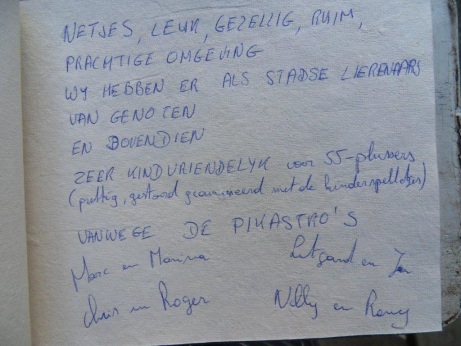 NETJES, LEUK, GEZELLIG, RUIM,
PRACHTIGE OMGEVING
WY HEBBEN ER ALS STADSE LIERENAARS
VAN GENOTEN
EN BOVENDIEN
ZEER KINDVRIENDELYK voor 55-plussers
(prettig, gestoord geamuseerd met de kinderspelletjes)
VANWEGE DE PIKASTRO'S
Marc en Marina
Lutgard en Jan
Chris en Roger
Nelly en Romy